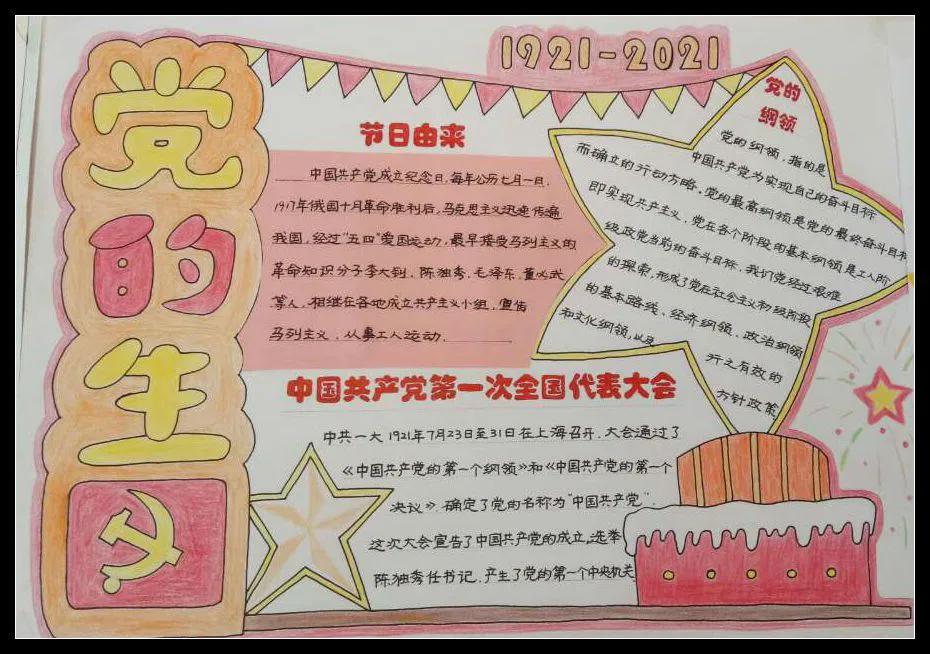 党的生
1921-2021
节日由来
中国共产党成立纪念日,每年公历七月一日.
1917年俄国十月革命胜利后,马克思主义迅速传遍
我国,经过"五四"爱国运动,最早接受马列主义的
革命知识分子李大钊、陈独秀、毛泽东、董必武
等人,相继在各地成立共产主义小组,宣传
马列主义,从事工人运动.
党的
纲领
党的纲领,指的是
中国共产党为实现自己的奋斗目标
而确立的行动方略,党的最高纲领是党的最终奋斗目标
即实现共产主义,党在各个阶段的基本纲领是工人阶
级政党当前的奋斗目标,我们党经过艰难
的探索,形成了党在社会主义初级阶段
的基本路线、经济纲领、政治纲领
和文化纲领,以及
行之有效的
方针政策
中国共产党第一次全国代表大会
中共一大1921年7月23日至31日在上海召开.大会通过了
《中国共产党的第一个纲领》和《中国共产党的第一个
决议》.确定了党的名称为"中国共产党".
这次大会宣告了中国共产党的成立,选举
陈独秀任书记,产生了党的第一个中央机关